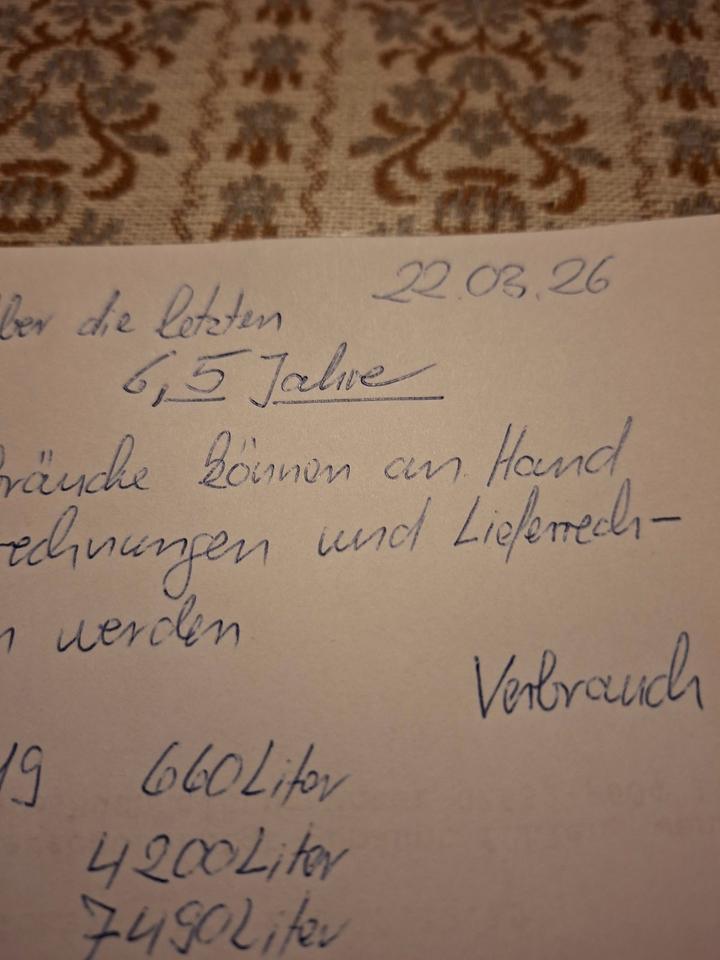 22.03.26
ber die letzten
6,5 Jahre
bräuche können an Hand
rechnungen und Lieferrech-
n werden
Verbrauch
19 660 Liter
4200 Liter
7490 Liter